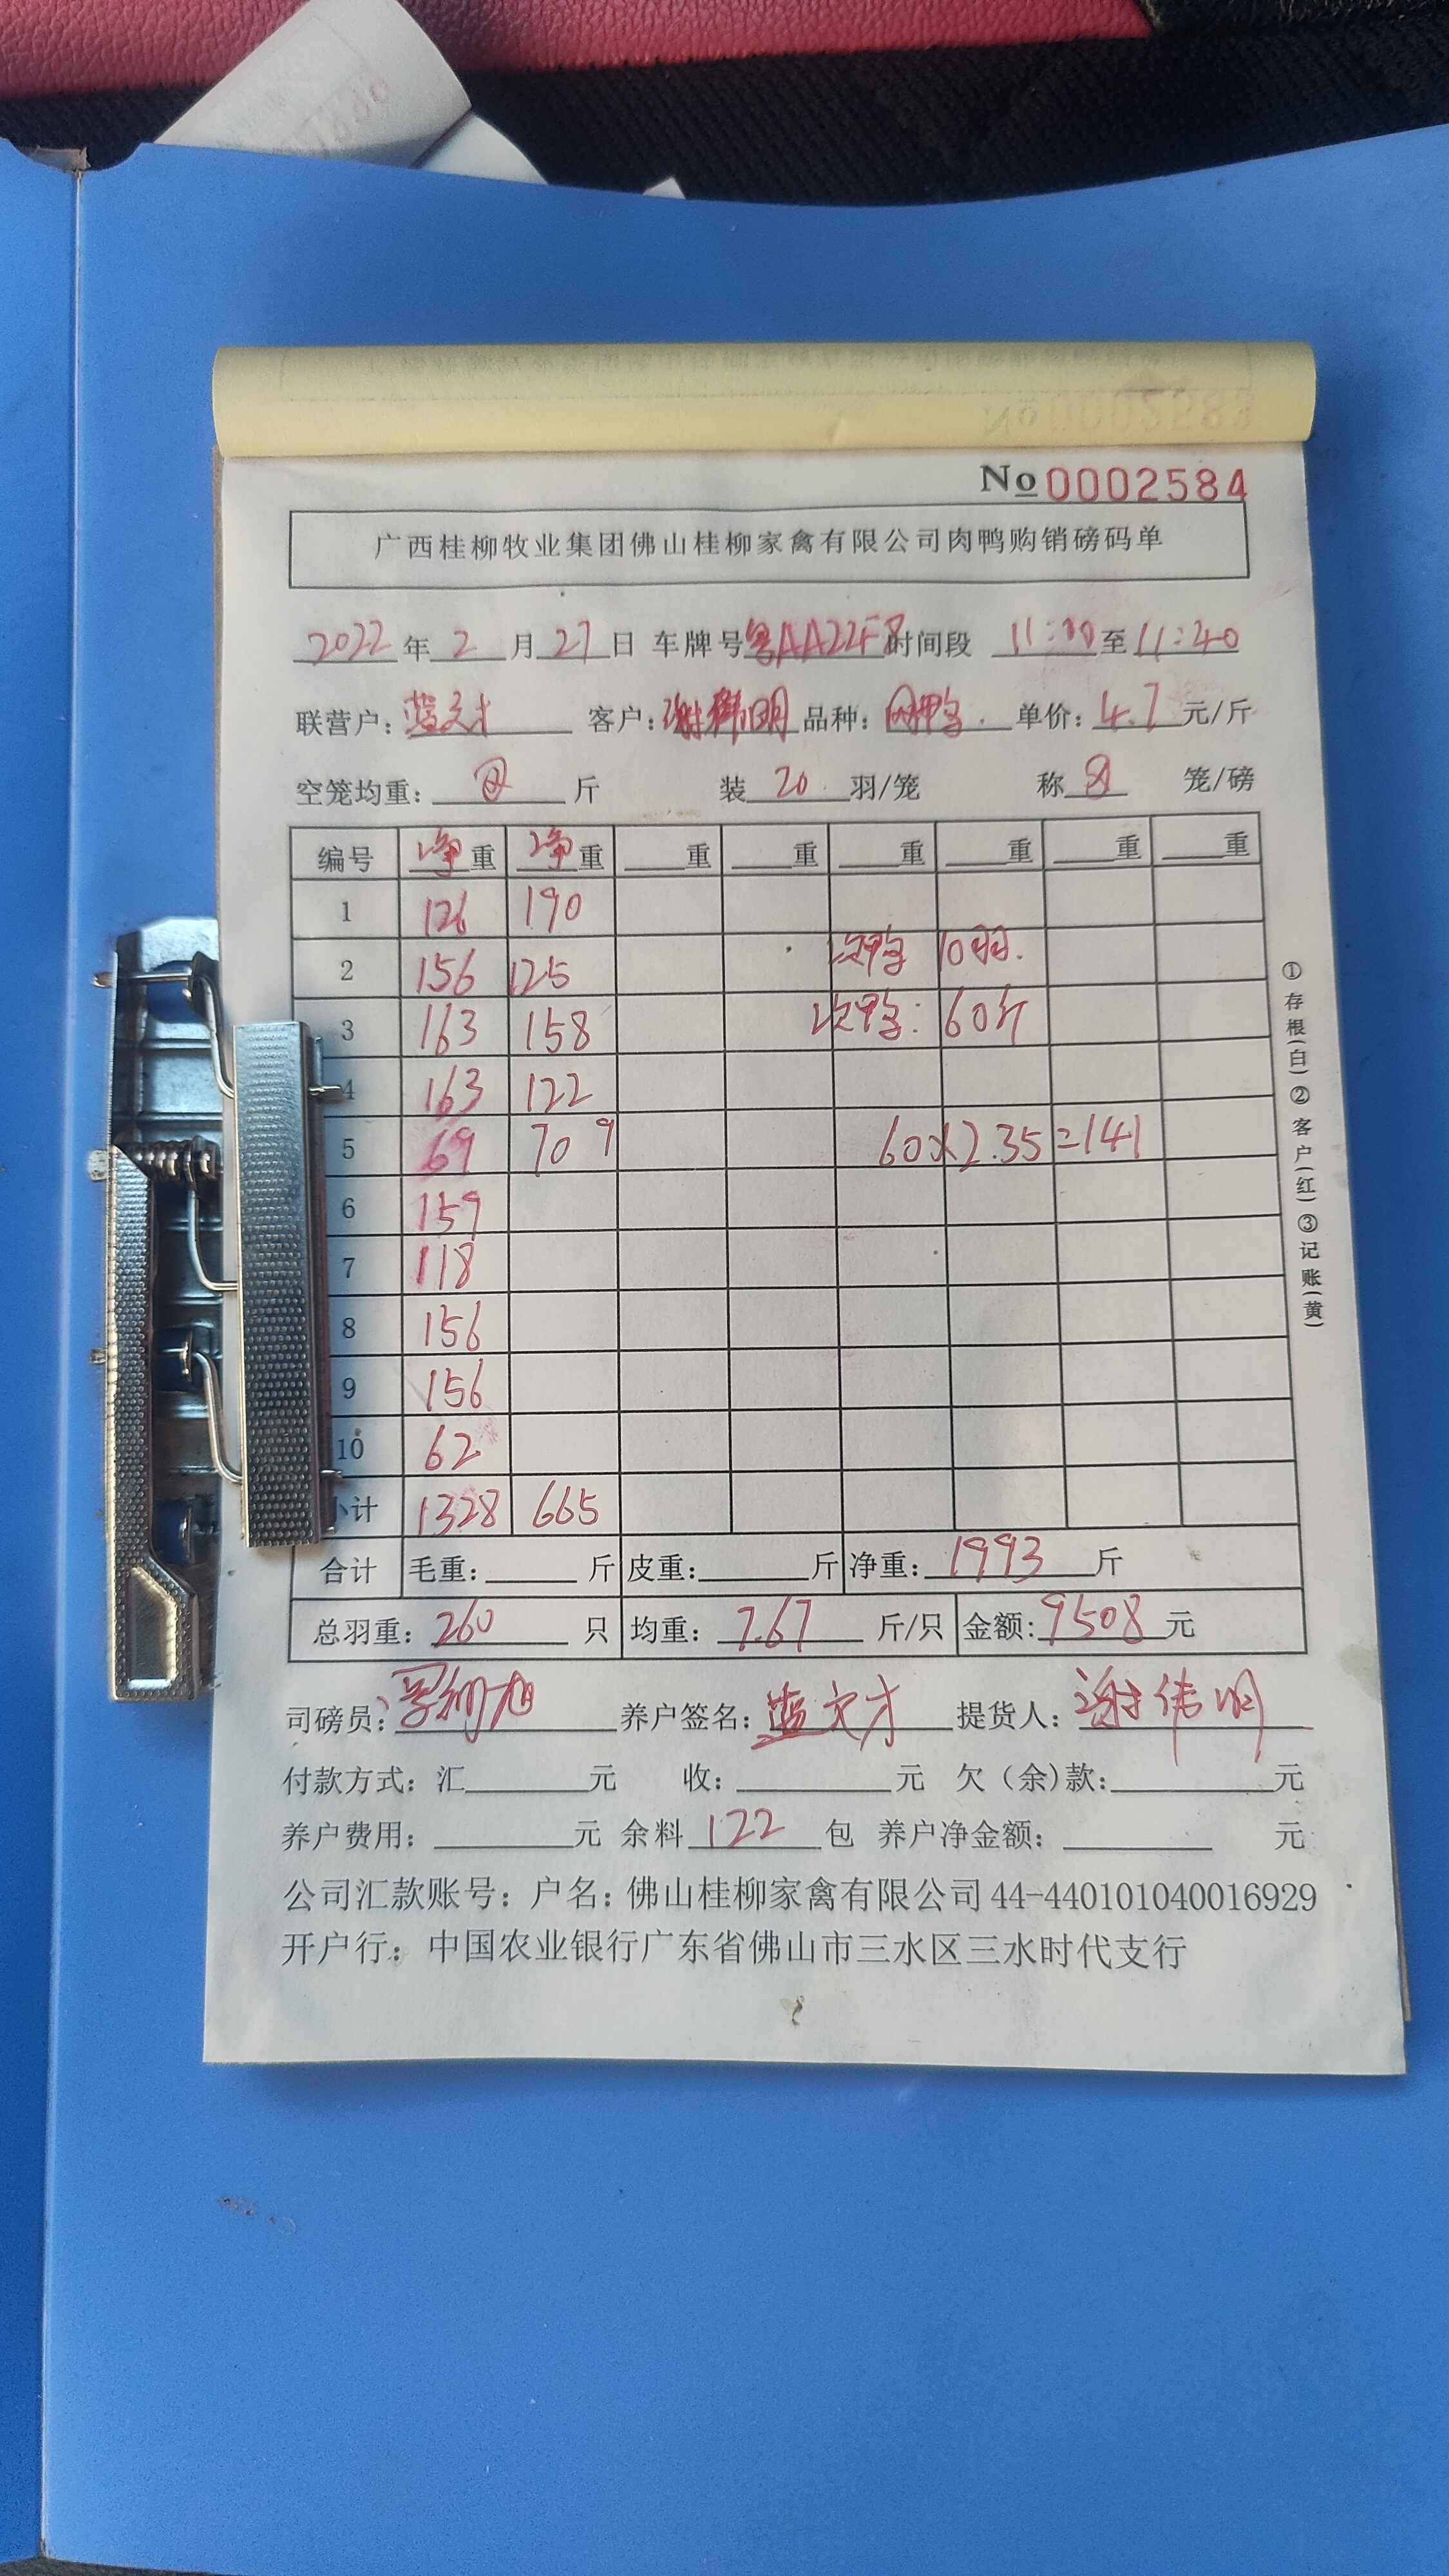 No 0002583
No 0002584
广西桂柳牧业集团佛山桂柳家禽有限公司肉鸭购销磅码单
2022年2月27日 车牌号粤AA22F8时间段 11:00至11:40
联营户:蓝文才 客户:谢伟明 品种: 单价:4.7元/斤
空笼均重: 斤 装20羽/笼 称 笼/磅
编号 净重 净重 重 重 重 重 重 重
1 126 190
2 156 125 次鸭 10羽.
3 163 158 次鸭: 60斤
4 163 122
5 69 70 9 60×2.35=141
6 159
7 118
8 156
9 156
10 62
小计 1328 665
合计 毛重: 斤 皮重: 斤 净重:1993斤
总羽重:260只 均重:7.67斤/只 金额:9508元
司磅员: 养户签名:蓝文才 提货人:谢伟明
付款方式:汇 元 收: 元 欠(余)款: 元
养户费用: 元 余料122包 养户净金额: 元
公司汇款账号:户名:佛山桂柳家禽有限公司44-440101040016929
开户行:中国农业银行广东省佛山市三水区三水时代支行
①存根(白)②客户(红)③记账(黄)